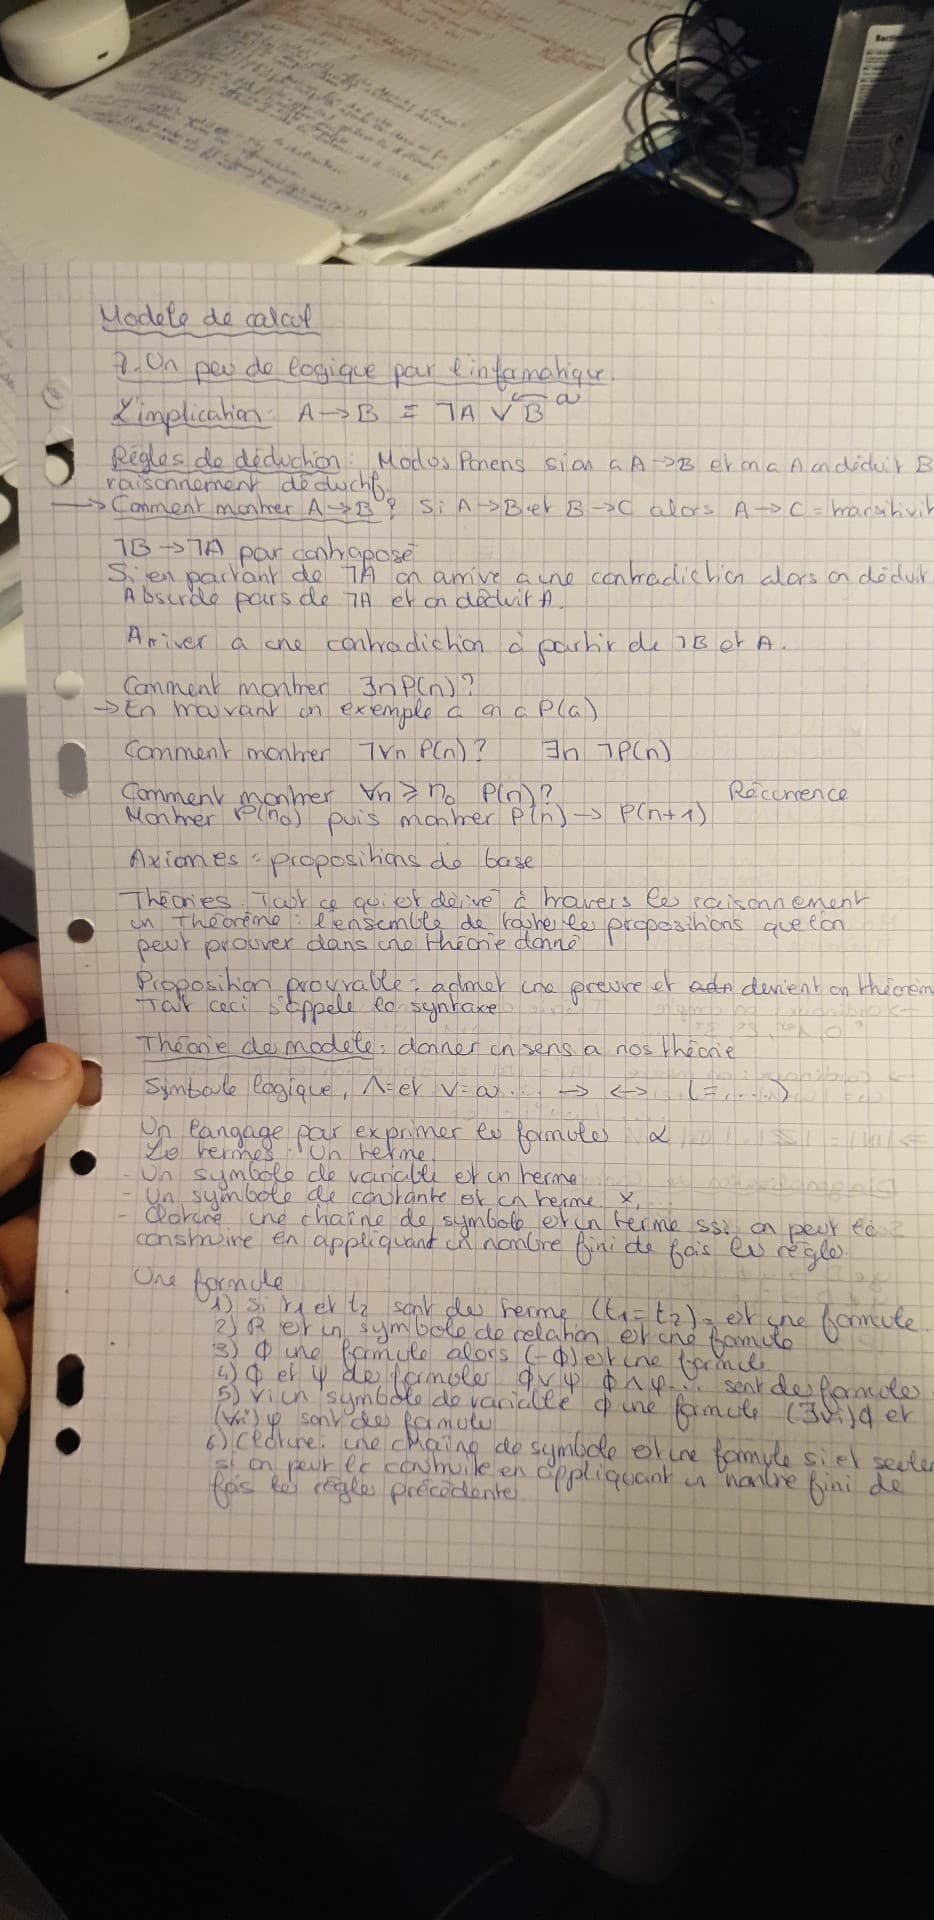 Modele de calcul
1. Un peu de logique par l'informatique.
L'implication: A → B ≡ ¬A ∨ B ou
Règles de déduction: Modus Ponens si on a A → B et on a A on déduit B
raisonnement déductif.
→ Comment montrer A → B? Si A → B et B → C alors A → C = transitivit
¬B → ¬A par contraposé
Si en partant de ¬A on arrive a une contradiction alors on déduit
Absurde pars de ¬A et on déduit A.
Arriver a une contradiction à partir de ¬B et A.
Comment montrer ∃n P(n)?
→ En trouvant un exemple a on a P(a)
Comment montrer ¬∀n P(n)? ∃n ¬P(n)
Comment montrer ∀n ≥ n₀ P(n)? Récurrence
Montrer P(n₀) puis montrer P(n) → P(n+1)
Axiomes = propositions de base
Théories. Tout ce qui est dérivé à travers le raisonnement
un Théorème: l'ensemble de toute les propositions que l'on
peut prouver dans une théorie donné
Proposition prouvable = admet une preuve et devient un théorèm
Tout ceci s'appele la syntaxe
Théorie de modele: donner un sens a nos théorie
Symbole logique, Λ = et V = ou ... → ↔ ( = .....)
Un langage par exprimer les formules α
Le termes. Un terme
- Un symbole de variable est un terme
- Un symbole de constante est un terme x,
- Cloture une chaine de symbole est un terme ssi on peut le
construire en appliquant un nombre fini de fois les règle
Une formule
1) Si t₁ et t₂ sont de terme (t₁ = t₂) = est une formule
2) R est un symbole de relation est une formule
3) Φ une formule alors (¬Φ) est une formule
4) Φ et ψ de formules Φ∨ψ Φ∧ψ... sont des formules
5) Vi un symbole de variable Φ une formule (∃vi)Φ et
(∀vi)φ sont des formule
6) Cloture: une chaine de symbole est une formule si et seule
si on peut le construire en appliquant un nombre fini de
fois les règle précédente